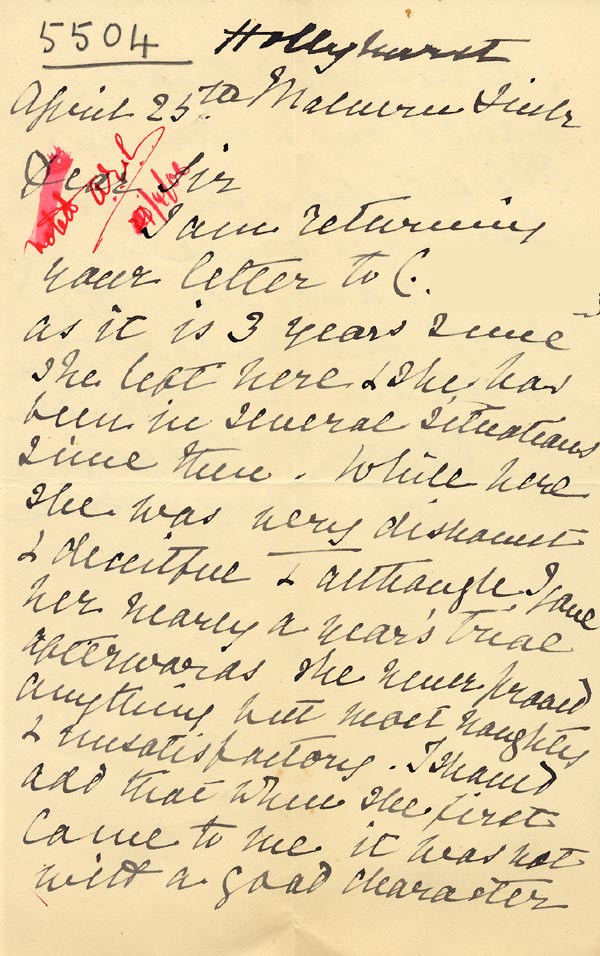 5504 Hollyhurst
April 25th Malvern Link
Dear Sir
noted
I am returning
your letter to C.
as it is 3 years since
she left here & she has
been in several situations
since then. While here
she was very dishonest
& deceitful & although I gave
her nearly a year's trial
afterwards she never proved
anything but most naughty
& unsatisfactory. I should
add that when she first
came to me it was not
with a good character